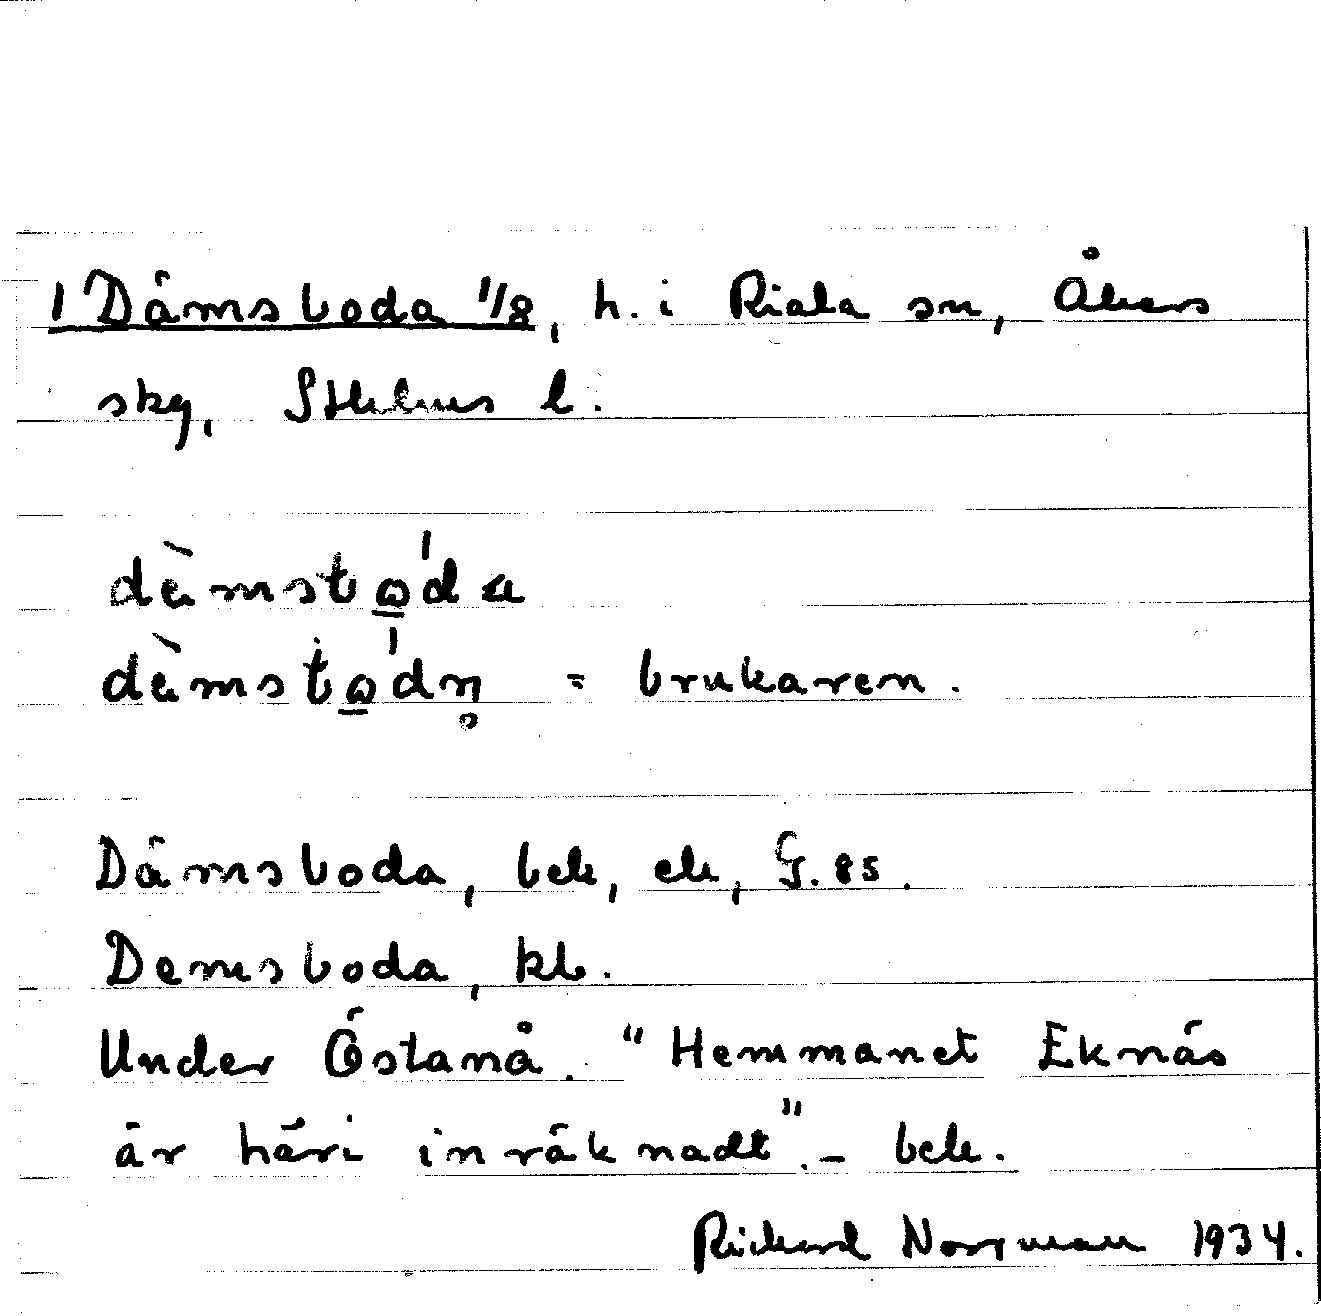 1 Dämsboda 1/8, h. i Riala sn, Åkers
skg, Sthlms l.
dämsboda = brukaren.
Dämsboda, bek, ek, G. 85.
Demsboda, kb.
Under Östanå. "Hemmanet Eknäs
är häri inräknadt". – bek.
Rickard Norrman 1934.